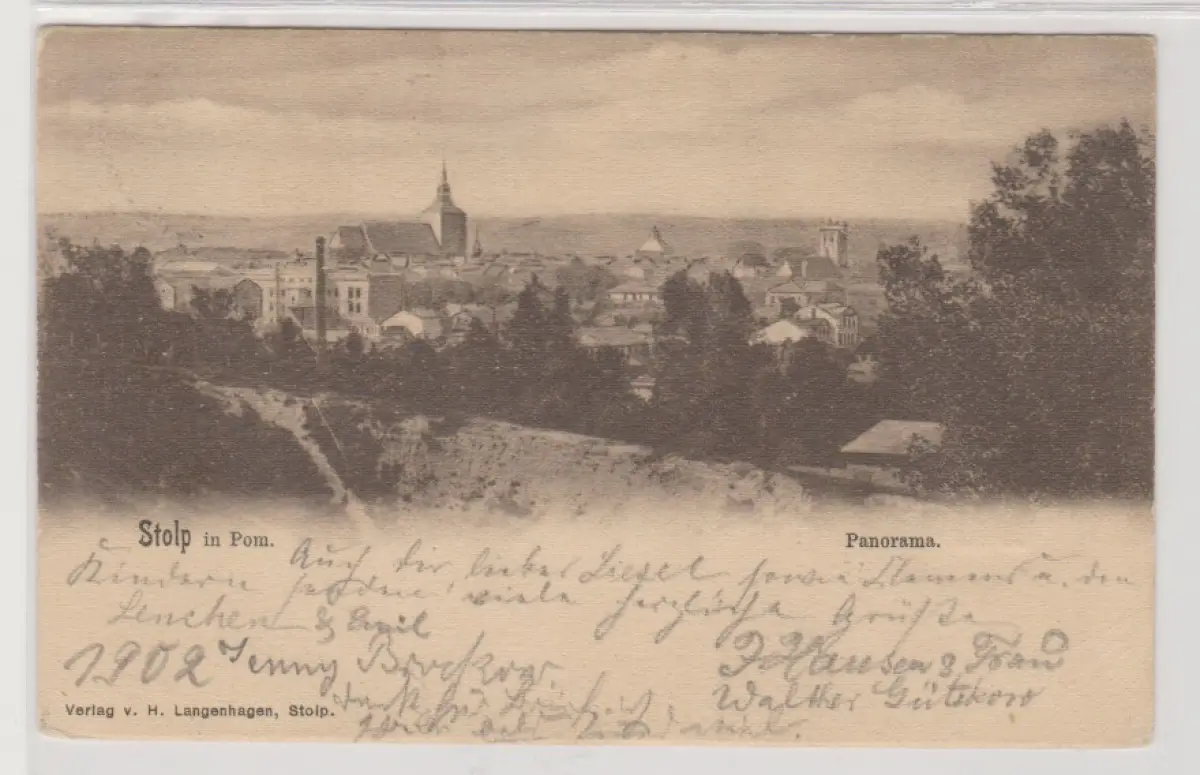 Stolp in Pom.
Panorama.
Auch dir, liebes Liesel sowie Clemens u. den
Kindern senden viele herzliche Grüße
Lenchen & Emil
1902 Jenny
J Hansen & Frau
Walther Gützkow
Verlag v. H. Langenhagen, Stolp.